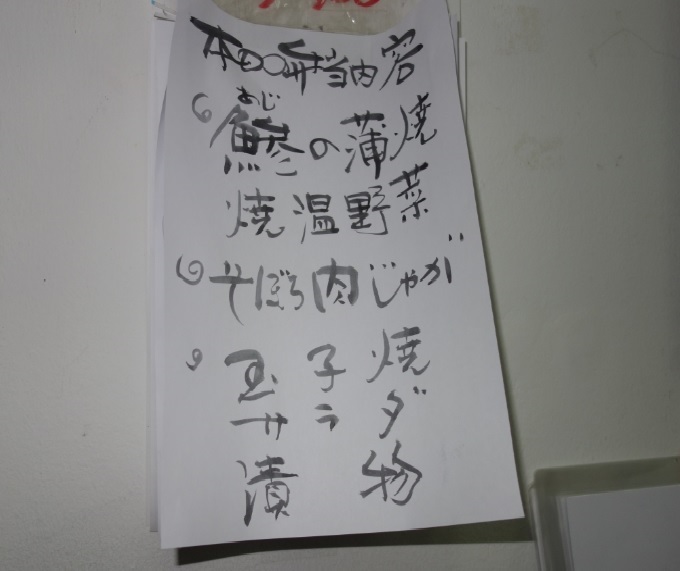 本日の弁当内容
あじ
鯵の蒲焼
焼温野菜
そぼろ肉じゃが
玉子焼
サラダ
漬物